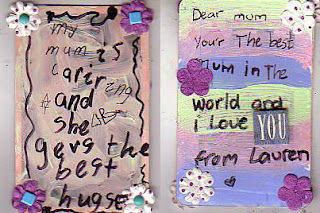 my
mum is
carir
and
she
gevs the
best
hugse
Dear mum
your The best
mum in The
world and
i Love YOU
from Lauren